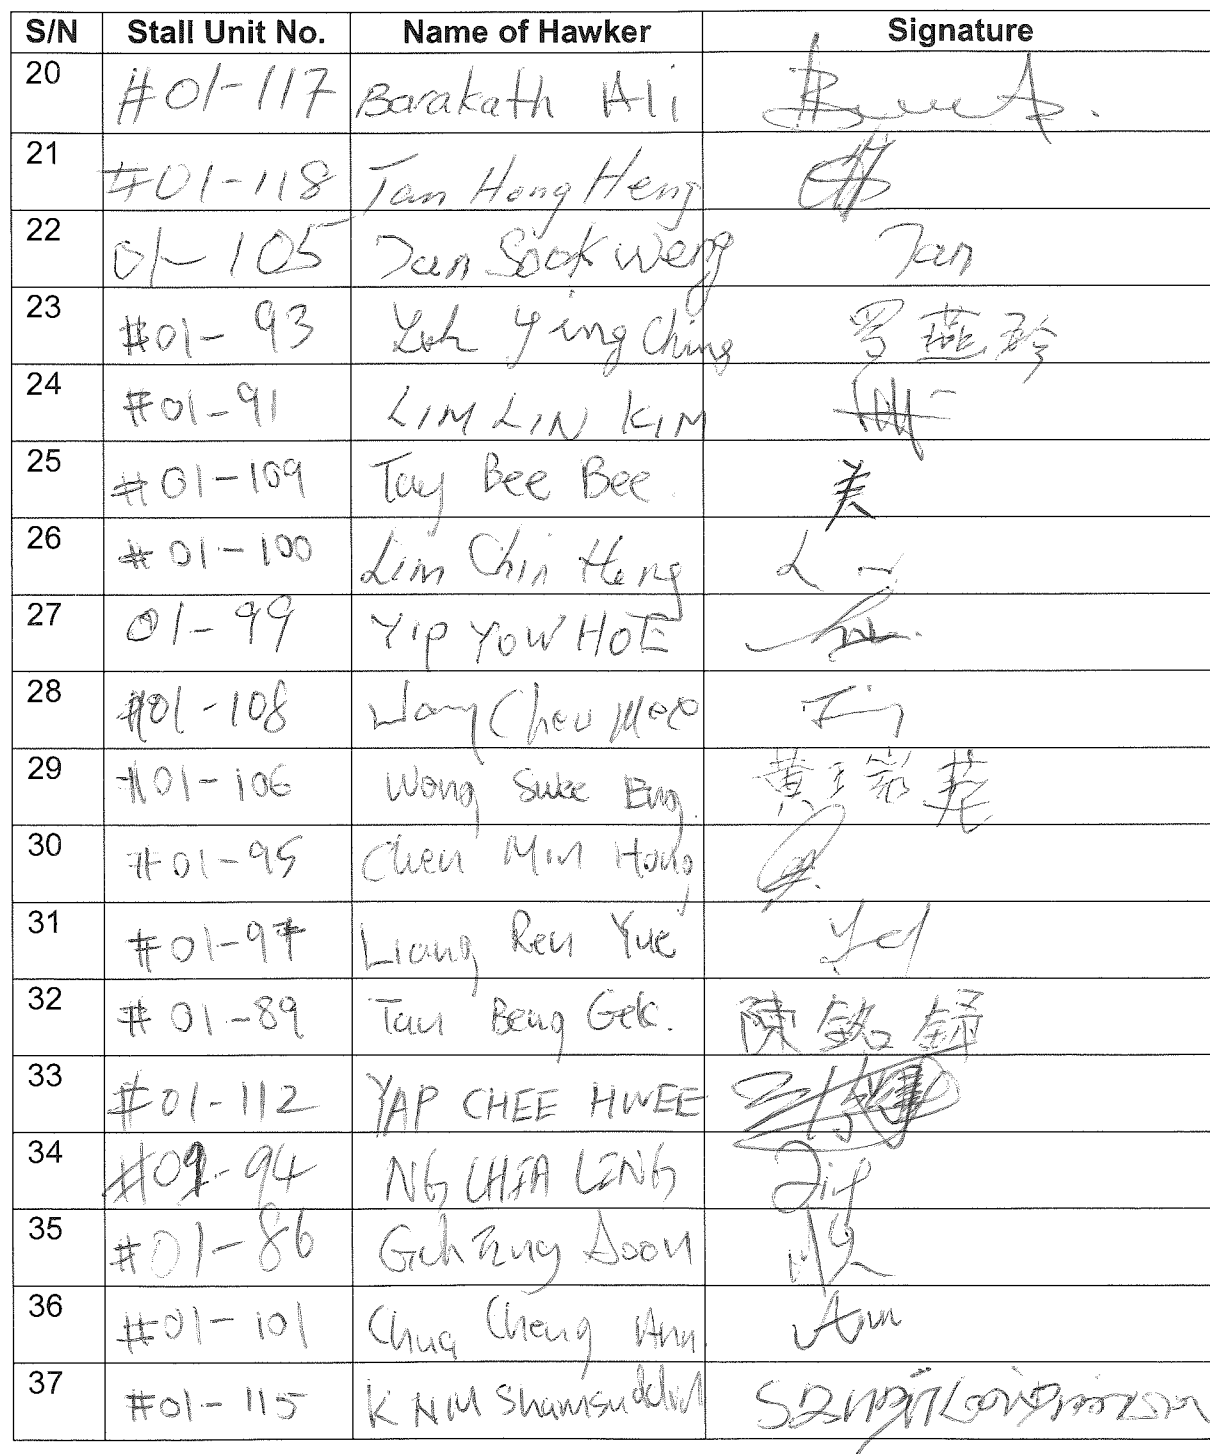 S/N Stall Unit No. Name of Hawker Signature
20 #01-117 Barakath Ali
21 #01-118 Tan Hong Heng
22 01-105 Tan Sook Weng Tan
23 #01-93 Loh Ying Ching 罗燕玲
24 #01-91 LIM LIN KIM
25 #01-109 Tay Bee Bee 美
26 #01-100 Lim Chin Heng
27 01-99 Yip YOW HOE
28 #01-108 Wong Cheu Mee
29 #01-106 Wong Swee Eng 黄瑞英
30 #01-95 Chen Min Hong
31 #01-97 Liang Ren Yue
32 #01-89 Tan Beng Gek. 陳銘
33 #01-112 YAP CHEE HWEE
34 #01-94 NG CHIA LING
35 #01-86 Goh Soon
36 #01-101 Chua Cheng Ann. Ann
37 #01-115 K NM Shamsuddin